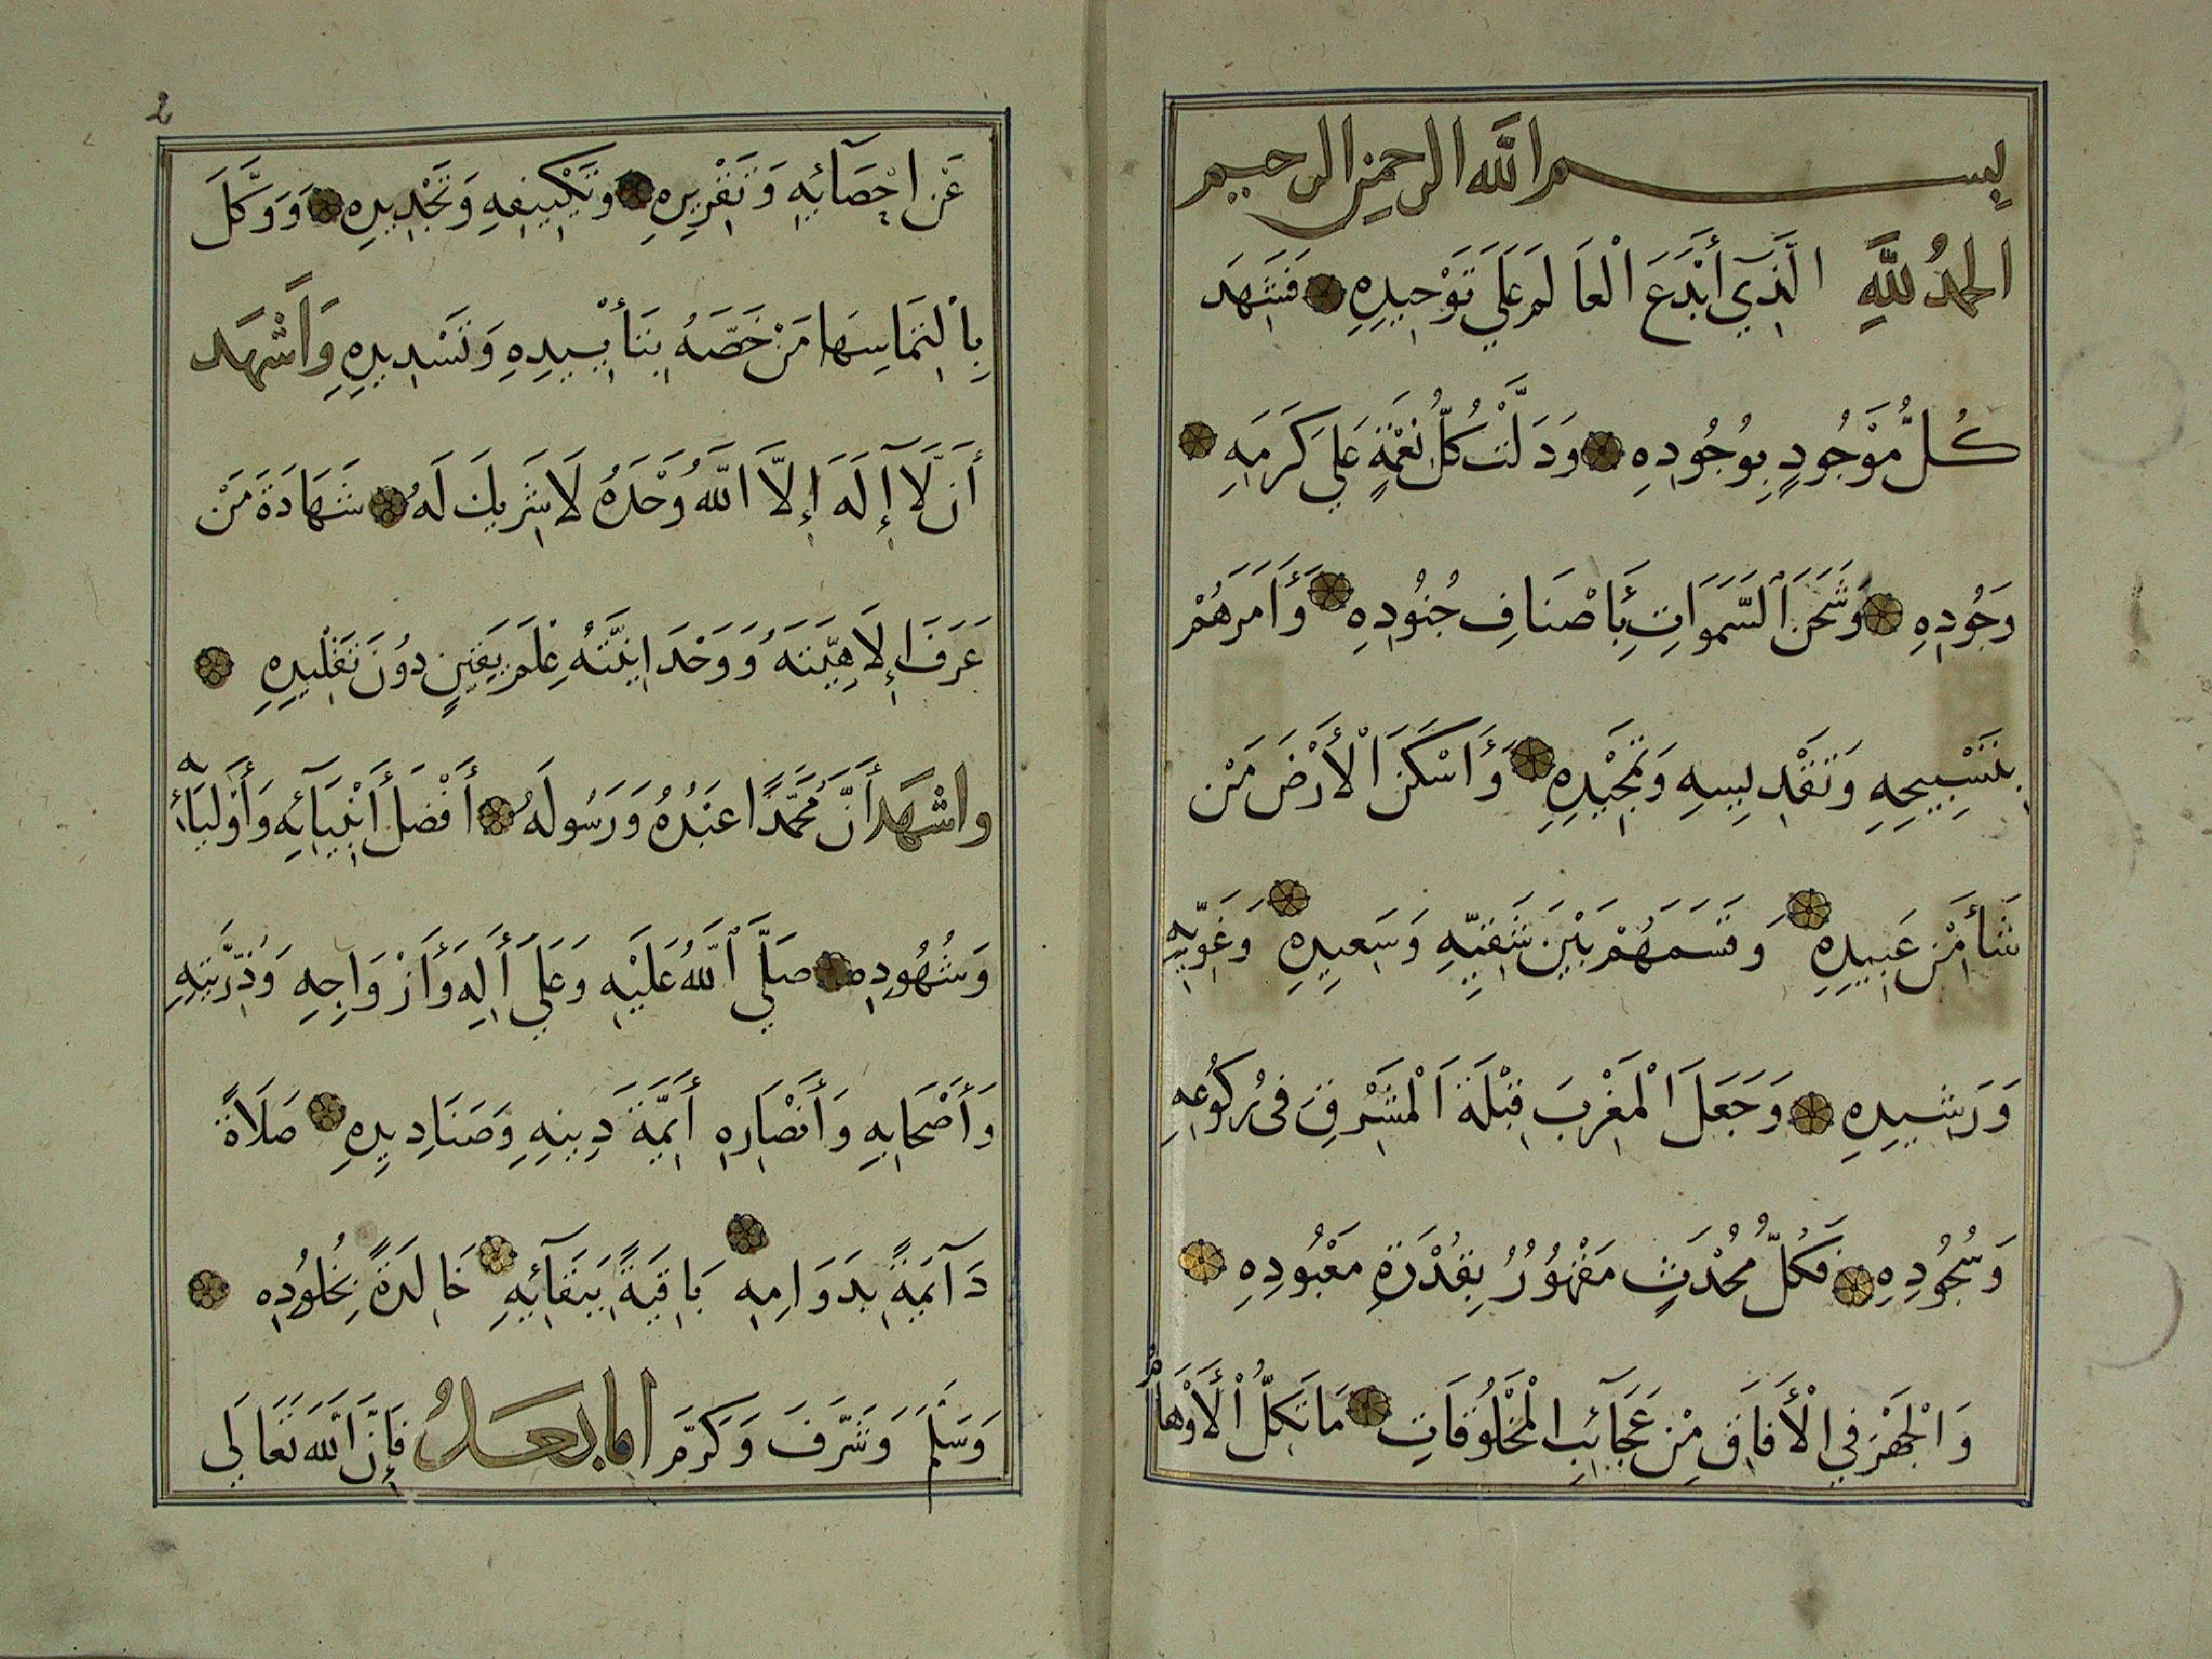 بسم الله الرحمن الرحيم
الحمدُ للَّهِ الَّذِي أَبْدَعَ الْعَالَمَ عَلَي تَوْحِيدِهِ فَشَهِدَ
كُلُّ مَوْجُودٍ بِوُجُودِهِ وَدَلَّتْ كُلُّ نِعْمَةٍ عَلَي كَرَمِهِ
وَجُودِهِ وَشَحَنَ السَّمَوَاتِ بِأَصْنَافِ جُنُودِهِ وَأَمَرَهُمْ
بِتَسْبِيحِهِ وَتَقْدِيسِهِ وَتَمْجِيْدِهِ وَأَسْكَنَ الْأَرْضَ مَنْ
شَأَ مِنْ عَبِيدِهِ وَقَسَمَهُمْ بَيْنَ شَقِيِّهِ وَسَعِيدِهِ وَغَوِيِّهِ
وَرَشِيدِهِ وَجَعَلَ الْمَغْرِبَ قِبْلَةَ الْمَشْرِقِ فِى رُكُوعِهِ
وَسُجُودِهِ فَكُلُّ مُحْدَثٍ مَقْهُورُ بِقُدْرَةِ مَعْبُودِهِ
وَالْجَهْرَ فِي الْأَفَاقِ مِنْ عَجَآئِبِ الْمَخْلُوقَاتِ مَا تَكِلُّ الْأَوْهَامُ
2
عَنْ اِحْصَآئِهِ وَتَقْرِيرِهِ وَتَكْيِيفِهِ وَتَحْدِيدِهِ وَوَكَّلَ
بِالْتِمَاسِهَا مَنْ خَصَّهُ بِتَأْيِيدِهِ وَتَسْدِيدِهِ وَاَشْهَد
أَن لَّا إِلَهَ إِلَّا اللَّهُ وَحْدَهُ لَا شَرِيكَ لَهُ شَهَادَةَ مَنْ
عَرَفَ إِلَاهِيَّتَهُ وَوَحْدَانِيَّتَهُ عِلْمَ يَقِينٍ دُونَ تَقْلِيدِهِ
واشْهَد أَنَّ مُحَمَّدًا عَبْدُهُ وَرَسُولَهُ أَفْضَل أَنْبِيَآئِهِ وَأَوْلِيَآئِهِ
وَشُهُودِهِ صَلَّي اللَّهُ عَلَيْهِ وَعَلَي أَلِهِ وَأَزْوَاجِهِ وَذُرِّيَّتِهِ
وَأَصْحَابِهِ وَأَنْصَارِهِ أَئِمَّةَ دِينِهِ وَصَنَادِيدِهِ صَلَاةً
دَآئِمَةً بِدَوَامِهِ بَاقِيَةً بِبَقَآئِهِ خَالِدَةً بِخُلُودِهِ
وَسَلَّمَ وَشَرَّفَ وَكَرَّمَ اما بعدُ فَإِنَّ اللَّهَ تَعَالَي